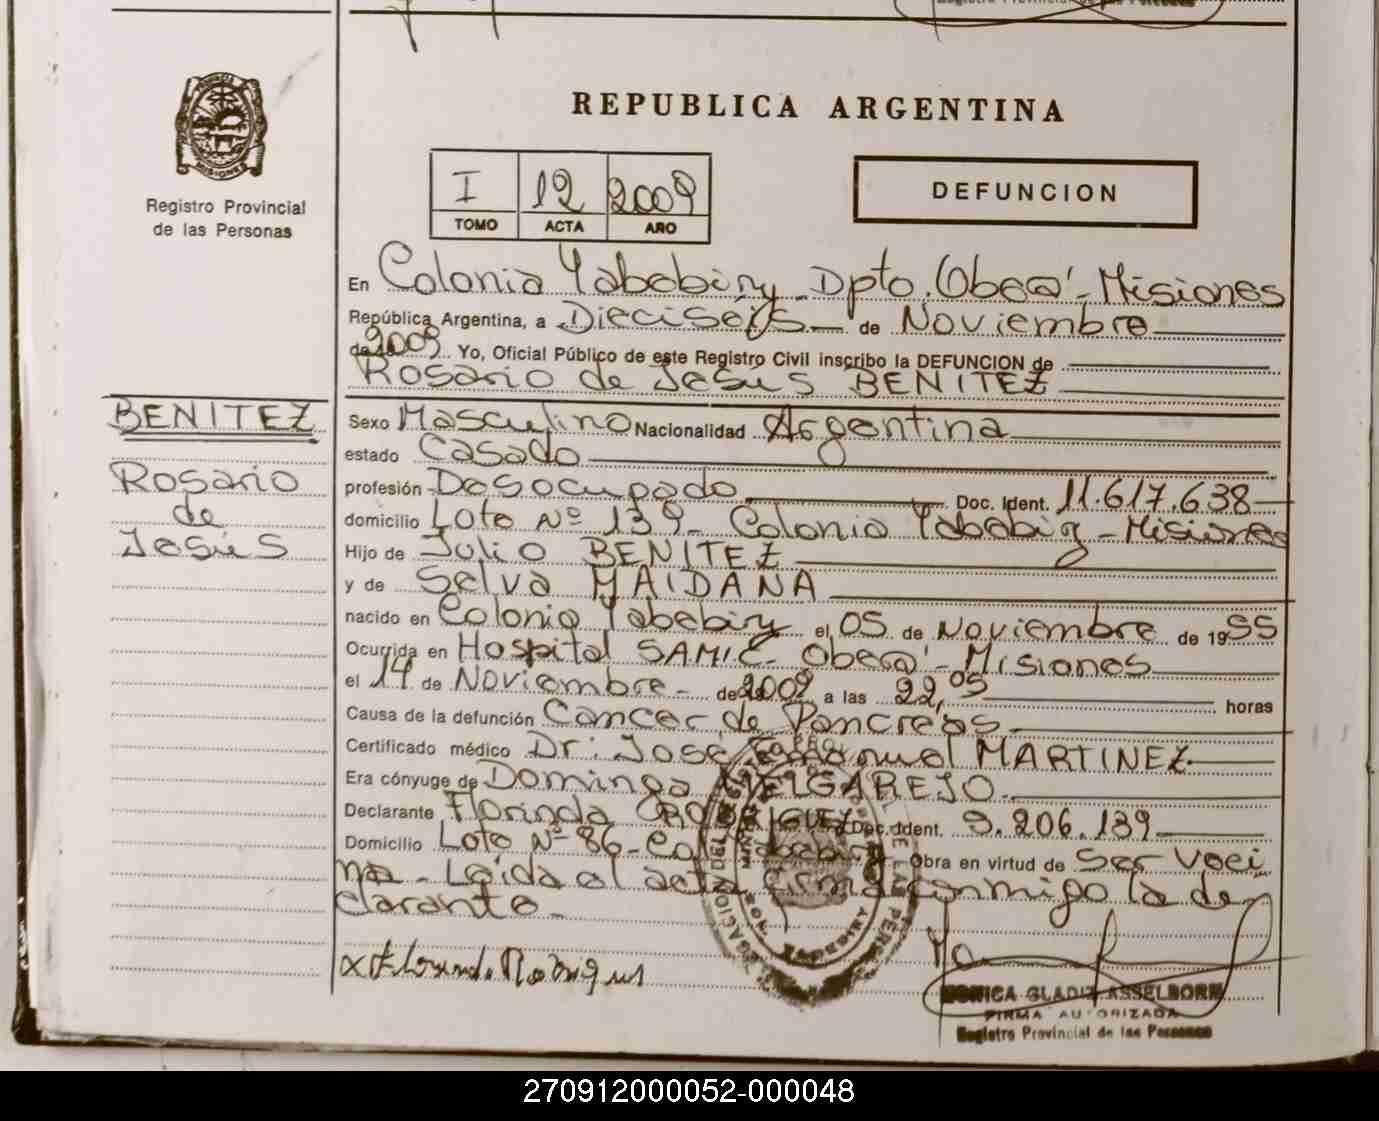 REPUBLICA ARGENTINA
Registro Provincial
de las Personas
I 12 2009
TOMO ACTA AÑO
DEFUNCION
En Colonia Yabebiry - Dpto. Oberá - Misiones
República Argentina, a Dieciséis de Noviembre
de 2009 Yo, Oficial Público de este Registro Civil inscribo la DEFUNCION de
Rosario de Jesús BENITEZ
BENITEZ
Rosario
de
Jesús
Sexo Masculino Nacionalidad Argentina
estado Casado
profesión Desocupado Doc. Ident. 11.617.638
domicilio Lote Nº 139 - Colonia Yabebiry - Misiones
Hijo de Julio BENITEZ
y de Selva MAIDANA
nacido en Colonia Yabebiry el 05 de Noviembre de 1955
Ocurrida en Hospital SAMIC - Oberá - Misiones
el 14 de Noviembre - de 2009 a las 22,05 horas
Causa de la defunción Cancer de Pancreas
Certificado médico Dr: José Emanuel MARTINEZ
Era cónyuge de Dominga MELGAREJO
Declarante Florinda RODRIGUEZ Doc. Ident. 9.206.139
Domicilio Lote Nº 86 - Col. Yabebiry Obra en virtud de Ser veci
na - Leída el acta firma conmigo la de
clarante
x Florinda Rodrigues
MONICA GLADIZ ASSELBORN
FIRMA AUTORIZADA
Registro Provincial de las Personas
270912000052-000048